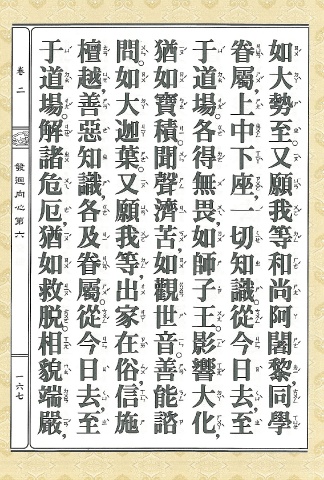 如大勢至。又願我等和尚阿闍黎同學
眷屬上中下座，一切知識從今日去，至
于道場。各得無畏，如師子王，影響大化，
猶如寶積。聞聲濟苦，如觀世音。善能諮
問。如大迦葉。又願我等，出家在俗，信施
檀越，善惡知識，各及眷屬。從今日去，至
于道場。解諸危厄猶如救脫。相貌端嚴，
卷二
發迴向心第六
一六七